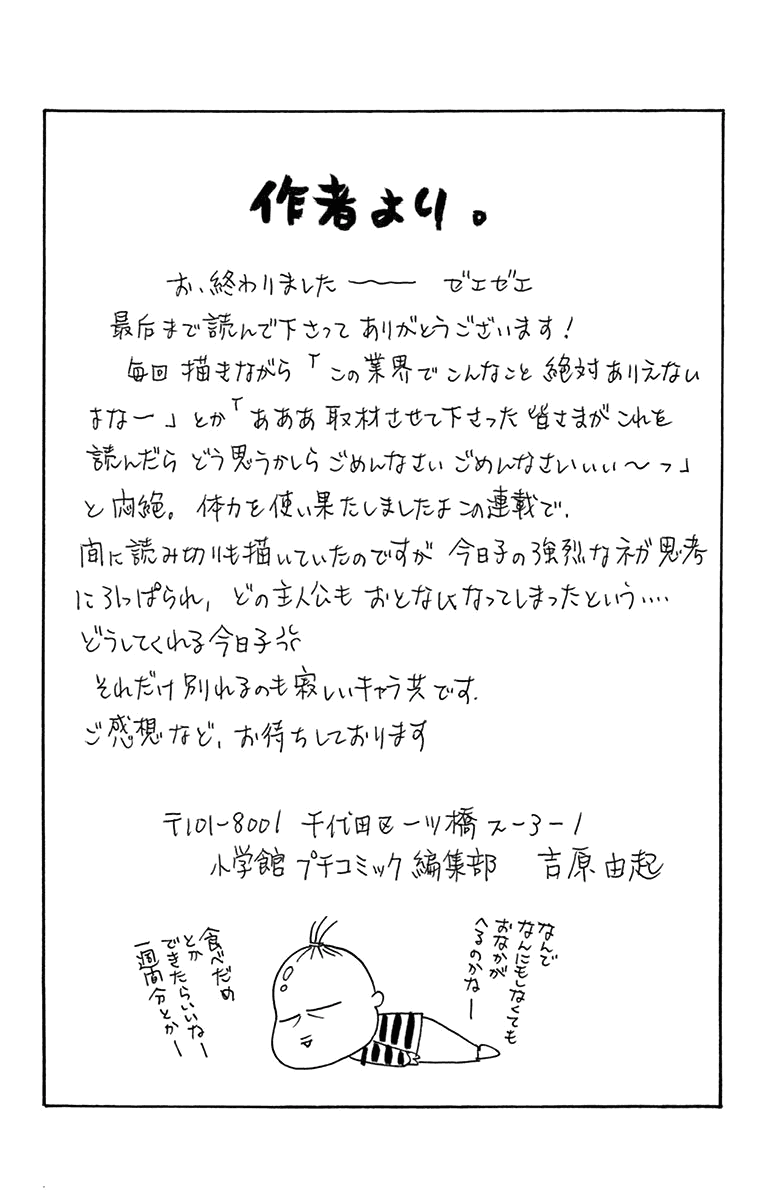 作者より。
お、終わりました〜〜 ゼエゼエ
最后まで読んで下さって ありがとうございます！
毎回 描きながら「この業界で こんなこと 絶対 ありえない
よなー」とか「あああ 取材させて下さった 皆さまが これを
読んだら どう思うかしら ごめんなさい ごめんなさいぃぃ〜っ」
と悶絶。体力を使い果たしましたよこの連載で、
間に読み切りも描いていたのですが 今日子の強烈なネガ思考
にひっぱられ、どの主人公も おとなしくなってしまったという‥‥
どうしてくれる今日子
それだけ 別れるのも寂しいキャラ共です。
ご感想など、お待ちしております
〒101-8001 千代田区一ツ橋 2-3-1
小学館 プチコミック 編集部 吉原由起
なんで
なんにもしなくても
おなかが
へるのかなー
食べだめ
とか
できたらいいなー
一週間分とかー